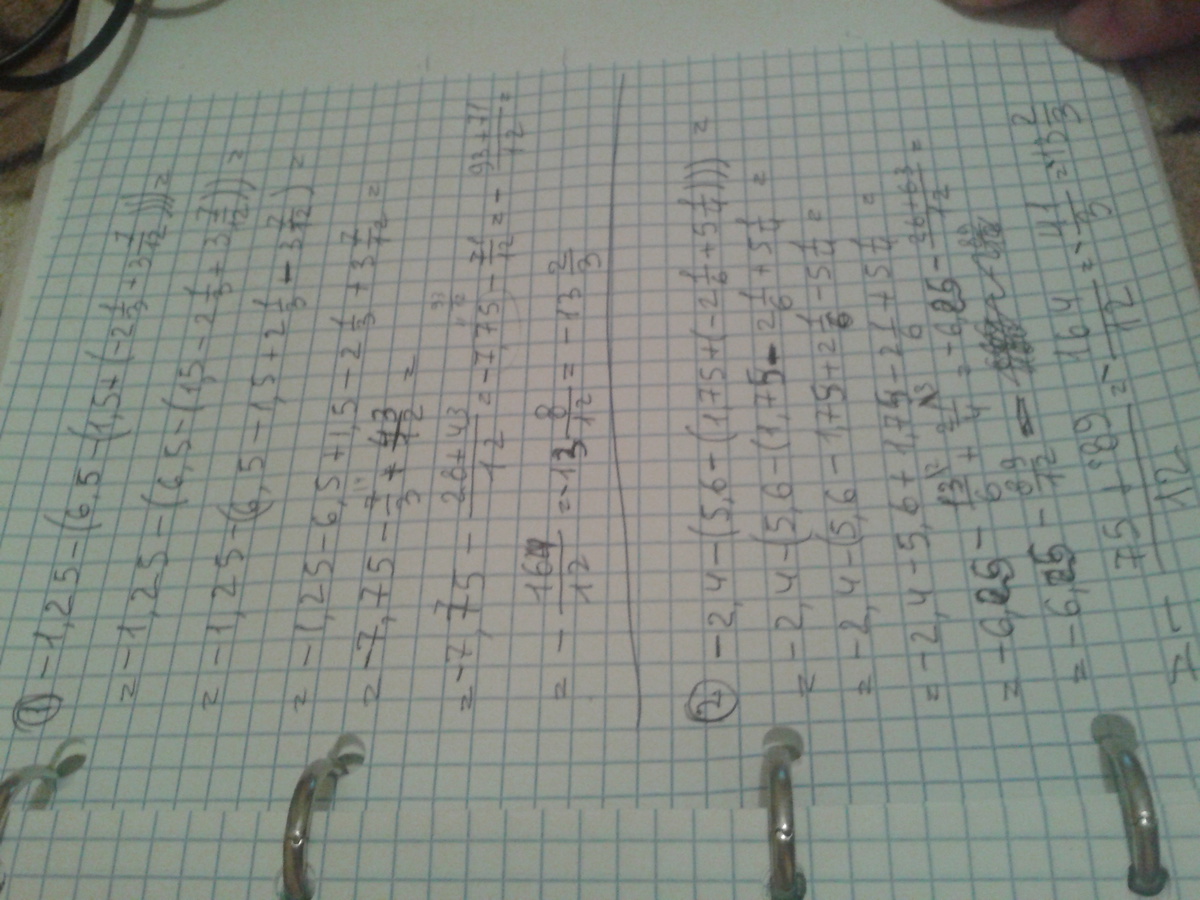 ① -1,25-(6,5-(1,5+(-2 1/3+3 7/12)))=
=-1,25-(6,5-(1,5-2 1/3+3 7/12))=
=-1,25-(6,5-1,5+2 1/3-3 7/12)=
=-1,25-6,5+1,5-2 1/3+3 7/12=
=-7,75-7/3+43/12=
=-7,75-(28+43)/12=-7,75-71/12=-(93+71)/12=
=-164/12=-13 8/12=-13 2/3
② -2,4-(5,6-(1,75+(-2 1/6+5 1/4)))=
=-2,4-(5,6-(1,75-2 1/6+5 1/4=
=-2,4-(5,6-1,75+2 1/6-5 1/4=
=-2,4-5,6+1,75-2 1/6+5 1/4=
=-6,25-13/6+21/4=-6,25-(26+63)/12=
=-6,25-89/12=
=-(75+89)/12=-164/12=-41/3=-13 2/3